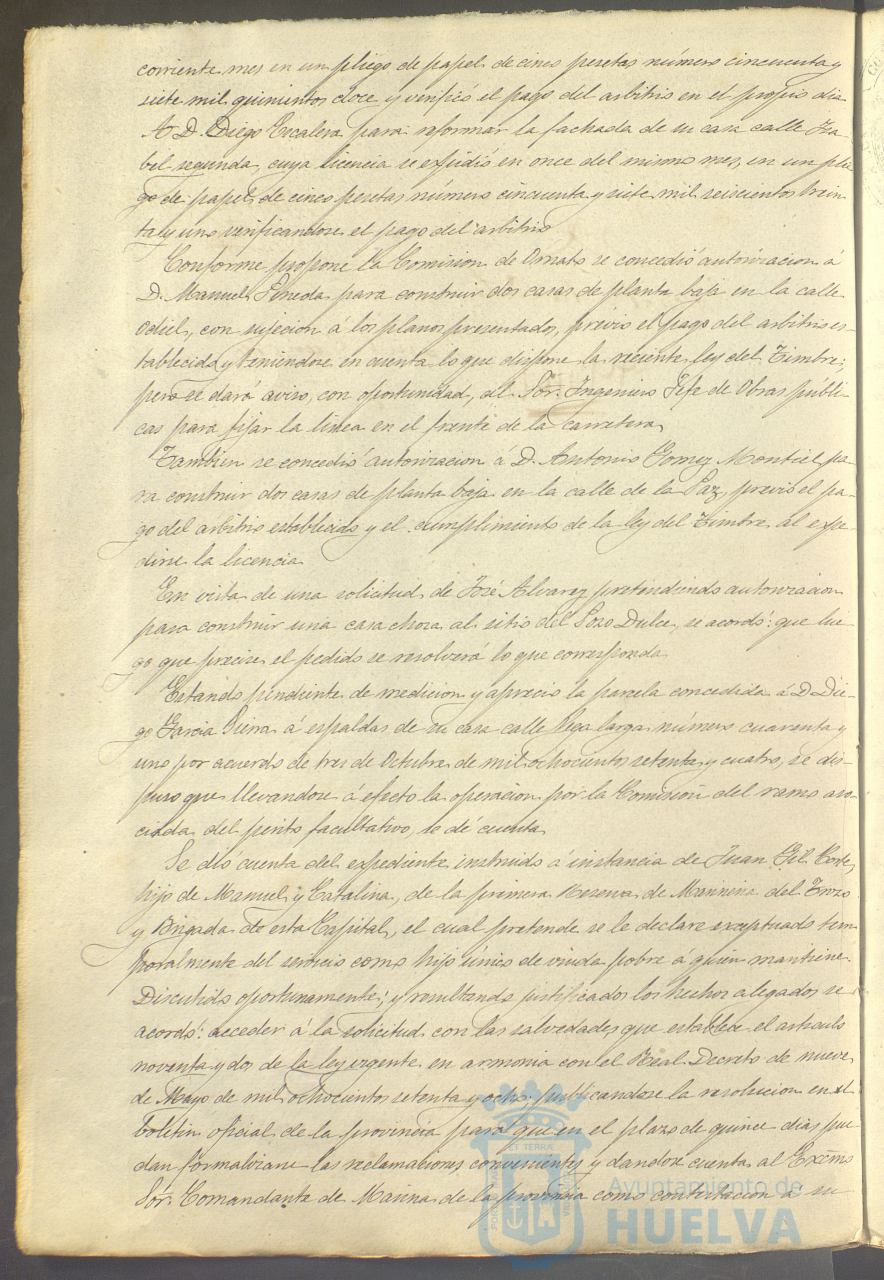 corriente mes en un pliego de papel de cinco pesetas número cincuenta y
siete mil quinientos doce y verificó el pago del arbitrio en el propio dia
A D. Diego Escalera para reformar la fachada de su casa calle Isa-
bel segunda, cuya licencia se expidió en once del mismo mes, en un plie-
go de papel de cinco pesetas número cincuenta y siete mil seiscientos trein-
ta y uno verificandose el pago del arbitrio
Conforme propone la Comision de Ornato se concedió autorizacion á
D. Manuel Pineda para construir dos casas de planta baja en la calle
Odiel, con sujecion á los planos presentados, previo el pago del arbitrio es-
tablecido y teniendose en cuenta lo que dispone la reciente ley del Timbre;
pero se dará aviso, con oportunidad, al Sor. Ingeniero Gefe de Obras públi-
cas para fijar la linea en el frente de la carretera
Tambien se concedió autorizacion á D. Antonio Gomez Montiel pa-
ra construir dos casas de planta baja en la calle de la Paz, previo el pa-
go del arbitrio establecido y el cumplimiento de la ley del Timbre al expe-
dirse la licencia
En vista de una solicitud de José Alvarez pretendiendo autorizacion
para construir una casa choza al sitio del Pozo Dulce, se acordó: que lue-
go que precise el pedido se resolverá lo que corresponda
Estando pendiente de medicion y aprecio la parcela concedida á D. Die-
go Garcia á espaldas de su casa calle Vega larga número cuarenta y
uno por acuerdo de tres de Octubre de mil ochocientos setenta y cuatro, se dis-
puso que llevandose á efecto la operacion por la Comision del ramo aso-
ciada del perito facultativo, se dé cuenta
Se dió cuenta del expediente instruido á instancia de Juan Gil
hijo de Manuel y Catalina, de la primera Reserva de Marineria del Trozo
y Brigada de esta Capital, el cual pretende se le declare exceptuado tem-
poralmente del servicio como hijo único de viuda pobre á quien mantiene.
Discutido oportunamente; y resultando justificados los hechos alegados se
acordó: acceder á la solicitud con las salvedades que establece el articulo
noventa y dos de la ley vigente en armonia con el Real Decreto de nueve
de Mayo de mil ochocientos setenta y ocho; publicandose la resolucion en el
boletin oficial de la provincia para que en el plazo de quince dias pue-
dan formalizarse las reclamaciones convenientes y dandose cuenta al Excmo
Sor. Comandante de Marina de la provincia como contestacion á su
Ayuntamiento de
HUELVA